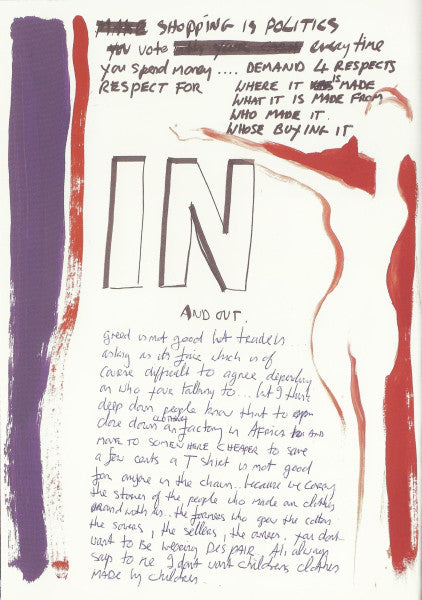 SHOPPING IS POLITICS
you vote every time
you spend money .... DEMAND 4 RESPECTS
RESPECT FOR WHERE IT IS MADE
WHAT IT IS MADE FROM
WHO MADE IT.
WHOSE BUYING IT
IN
AND OUT.
Greed is not good but trade is..
as long as its fair which is of
course difficult to agree depending
on who your talking to... but I think
deep down people know that to
close down a clothing factory in AFRICA and
move to SOMEWHERE CHEAPER to save
a few cents a T shirt is not good
for anyone in the chain. because we carry
the stories of the people who made our clothes
around with us. the farmers who grew the cotton.
the sewers, the sellers, the owners. you don't
want to Be wearing DESPAIR. Ali always
says to me I dont want childrens clothes
MADE by children.